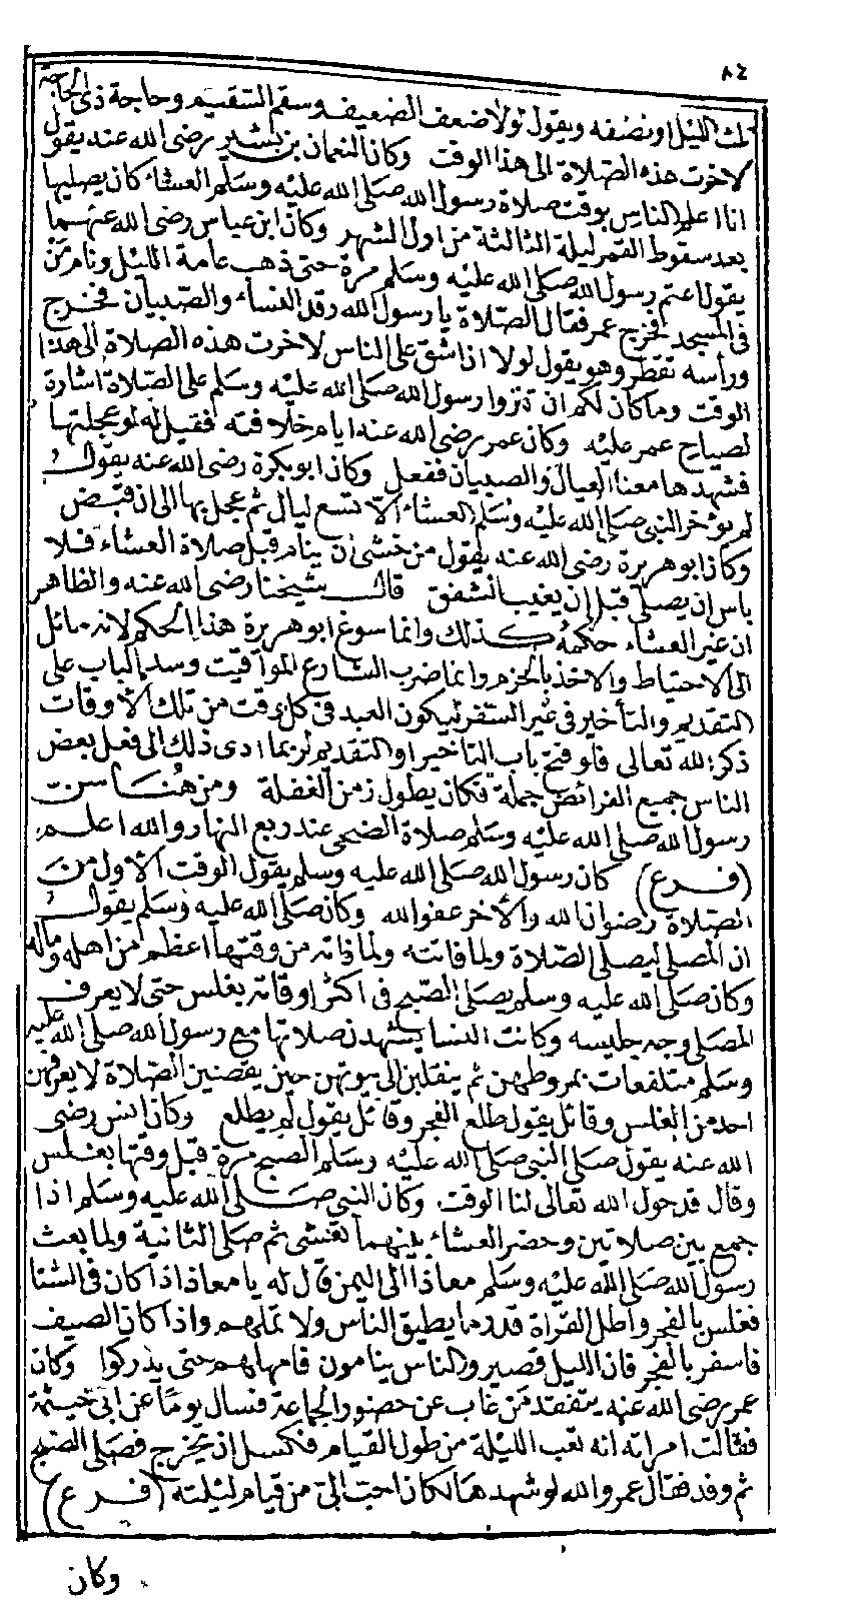 ٨٤
ثلث الليل او نصفه ويقول لولا ضعف الضعيف وسقم السقيم وحاجة ذى الحاجة
لاخرت هذه الصلاة الى هذا الوقت وكان النعمان بن بشير رضى الله عنه يقول
انا اعلم الناس بوقت صلاة رسول الله صلى الله عليه وسلم العشاء كان يصليها
بعد سقوط القمر ليلة الثالثة من اول الشهر وكان ابن عباس رضى الله عنهما
يقول اعتم رسول الله صلى الله عليه وسلم مرة حتى ذهب عامة الليل ونام من
فى المسجد فخرج عمر فقال الصلاة يا رسول الله رقد النساء والصبيان فخرج
وراسه تقطر وهو يقول لولا ان اشق على الناس لاخرت هذه الصلاة الى هذا
الوقت وما كان لكم ان تنزروا رسول الله صلى الله عليه وسلم على الصلاة اشارة
لصياح عمر عليه وكان عمر رضى الله عنه ايام خلافته فقيل له لو عجلتها
فشهدها معنا العيال والصبيان ففعل وكان ابو بكرة رضى الله عنه يقول
لم يؤخر النبى صلى الله عليه وسلم العشاء الا تسع ليال ثم عجل بها الى ان قبض
وكان ابو هريرة رضى الله عنه يقول من خشى ان ينام قبل صلاة العشاء فلا
باس ان يصلى قبل ان يغيب الشفق قال شيخنا رضى الله عنه والظاهر
ان غير العشاء حكمه كذلك وانما سوغ ابو هريرة هذا الحكم لانه مائل
الى الاحتياط والاخذ بالحزم وانما ضرب الشارع المواقيت وسد الباب على
التقديم والتأخير فى غير السفر ليكون العبد فى كل وقت من تلك الاوقات
ذكر الله تعالى فلو فتح باب التاخير او التقديم لربما ادى ذلك الى فعل بعض
الناس جميع الفرائض جملة فكان يطول زمن الغفلة ومن هنا سن
رسول الله صلى الله عليه وسلم صلاة الضحى عند ربع النهار والله اعلم
(فرع) كان رسول الله صلى الله عليه وسلم يقول الوقت الاول من
الصلاة رضوان الله والأخر عفو الله وكان صلى الله عليه وسلم يقول
ان المصلى ليصلى الصلاة ولما فاتته ولما فاته من وقتها اعظم من اهله وماله
وكان صلى الله عليه وسلم يصلى الصبح فى اكثر اوقاته بغلس حتى لا يعرف
المصلى وجه جليسه وكانت النسا يشهدن صلاتها مع رسول الله صلى الله عليه
وسلم متلفعات بمروطهن ثم ينقلبن الى بيوتهن حين يقضين الصلاة لا يعرفهن
احد من الغلس وقائل يقول طلع الفجر وقائل يقول لم يطلع وكان انس رضى
الله عنه يقول صلى النبى صلى الله عليه وسلم الصبح مرة قبل وقتها بغلس
وقال قد حول الله تعالى لنا الوقت وكان النبى صلى الله عليه وسلم اذا
جمع بين صلاتين وحضر العشاء بينهما تعشى ثم صلى الثانية ولما بعث
رسول الله صلى الله عليه وسلم معاذا الى اليمن قال له يا معاذ اذا كان فى الشتا
فغلس بالفجر واطل القراة قدر ما يطيق الناس ولا تملهم واذا كان الصيف
فاسفر بالفجر فان الليل قصير والناس ينامون فامهلهم حتى يدركوا وكان
عمر رضى الله عنه يتفقد من غاب عن حضور الجماعة فسال يوما عن ابى حيثمة
فقالت امراته انه تعب الليلة من طول القيام فكسل ان يخرج فصلى الصبح
ثم رقد فقال عمر والله لو شهدها لكان احب الىّ من قيام ليلته (فرع)
وكان